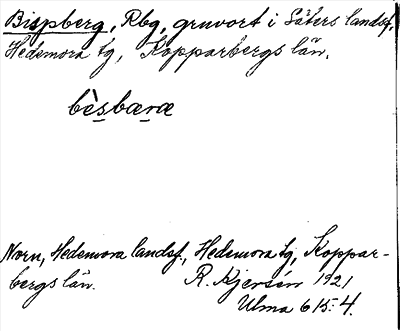 Bispberg, Rbg, gruvort i Säters landsf.
Hedemora tg, Kopparbergs län.
bèsbæræ
Norn, Hedemora landsf., Hedemora tg, Koppar-
bergs län. R. Kjersén 1921
Ulma 615:4.